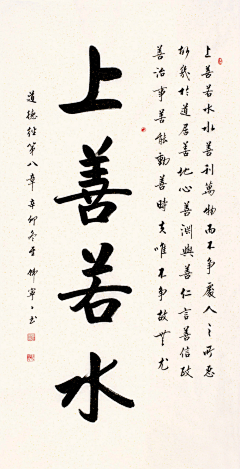 上善若水水善利萬物而不爭處人之所惡
故幾於道居善地心善淵與善仁言善信政
善治事善能動善時夫唯不爭故無尤
上善若水
道德經第八章辛卯冬
書